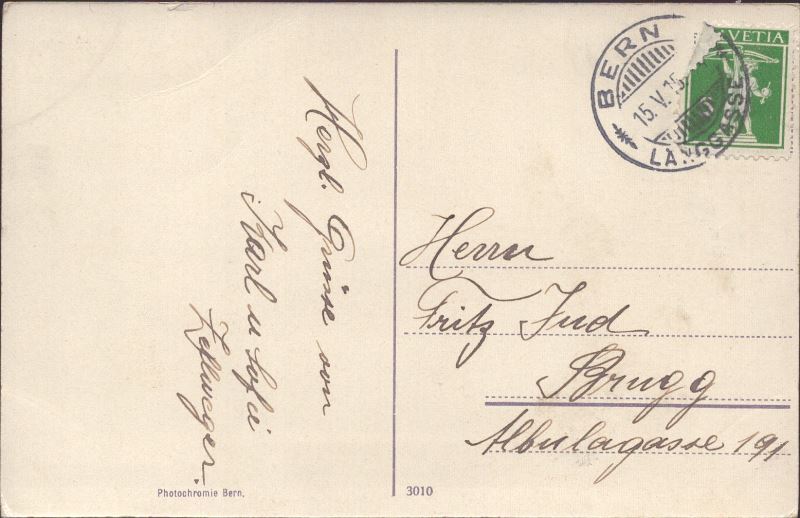 Herzl. Grüsse von
Karl u Sofie
Zellweger.
Photochromie Bern.
3010
BERN
15.V.15
LÄNGGASSE
HELVETIA
Herrn
Fritz Jud
Brugg
Albulagasse 191